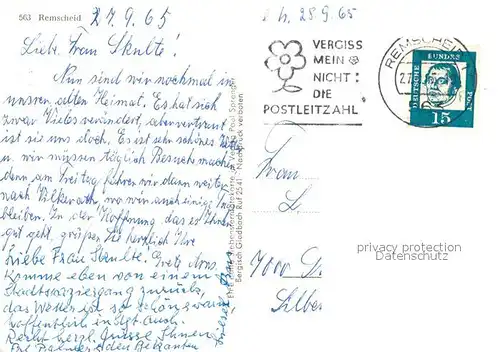 563 Remscheid
27.9.65
Liebe Frau Skulte!
Nun sind wir nochmal in
unsrer alten Heimat. Es hat sich
zwar Vieles verändert, aber vertraut
ist sie uns doch. Es ist sehr schönes
u. wir müssen täglich Besuche machen
denn am Freitag fahren wir dann weiter
nach wo wir auch einige
bleiben. In der Hoffnung das es Ihnen
gut geht, grüßen Sie herzlich Ihre
Liebe Frau Skulte!
Komme eben von einem
Stadtspaziergang zurück,
das Wetter ist so schön warm
hoffentlich in dgt. auch.
Recht herzl. Grüsse Ihnen
den Bekannten
Echte Verlag Paul
Bergisch Gladbach Ruf 2541 · Nachdruck verboten
h. 28.9.65
VERGISS
MEIN
NICHT:
DIE
POSTLEITZAHL
REMSCHEID
DEUTSCHE BUNDES POST
15
Frau
L.
7000
Silber
privacy protection
Datenschutz